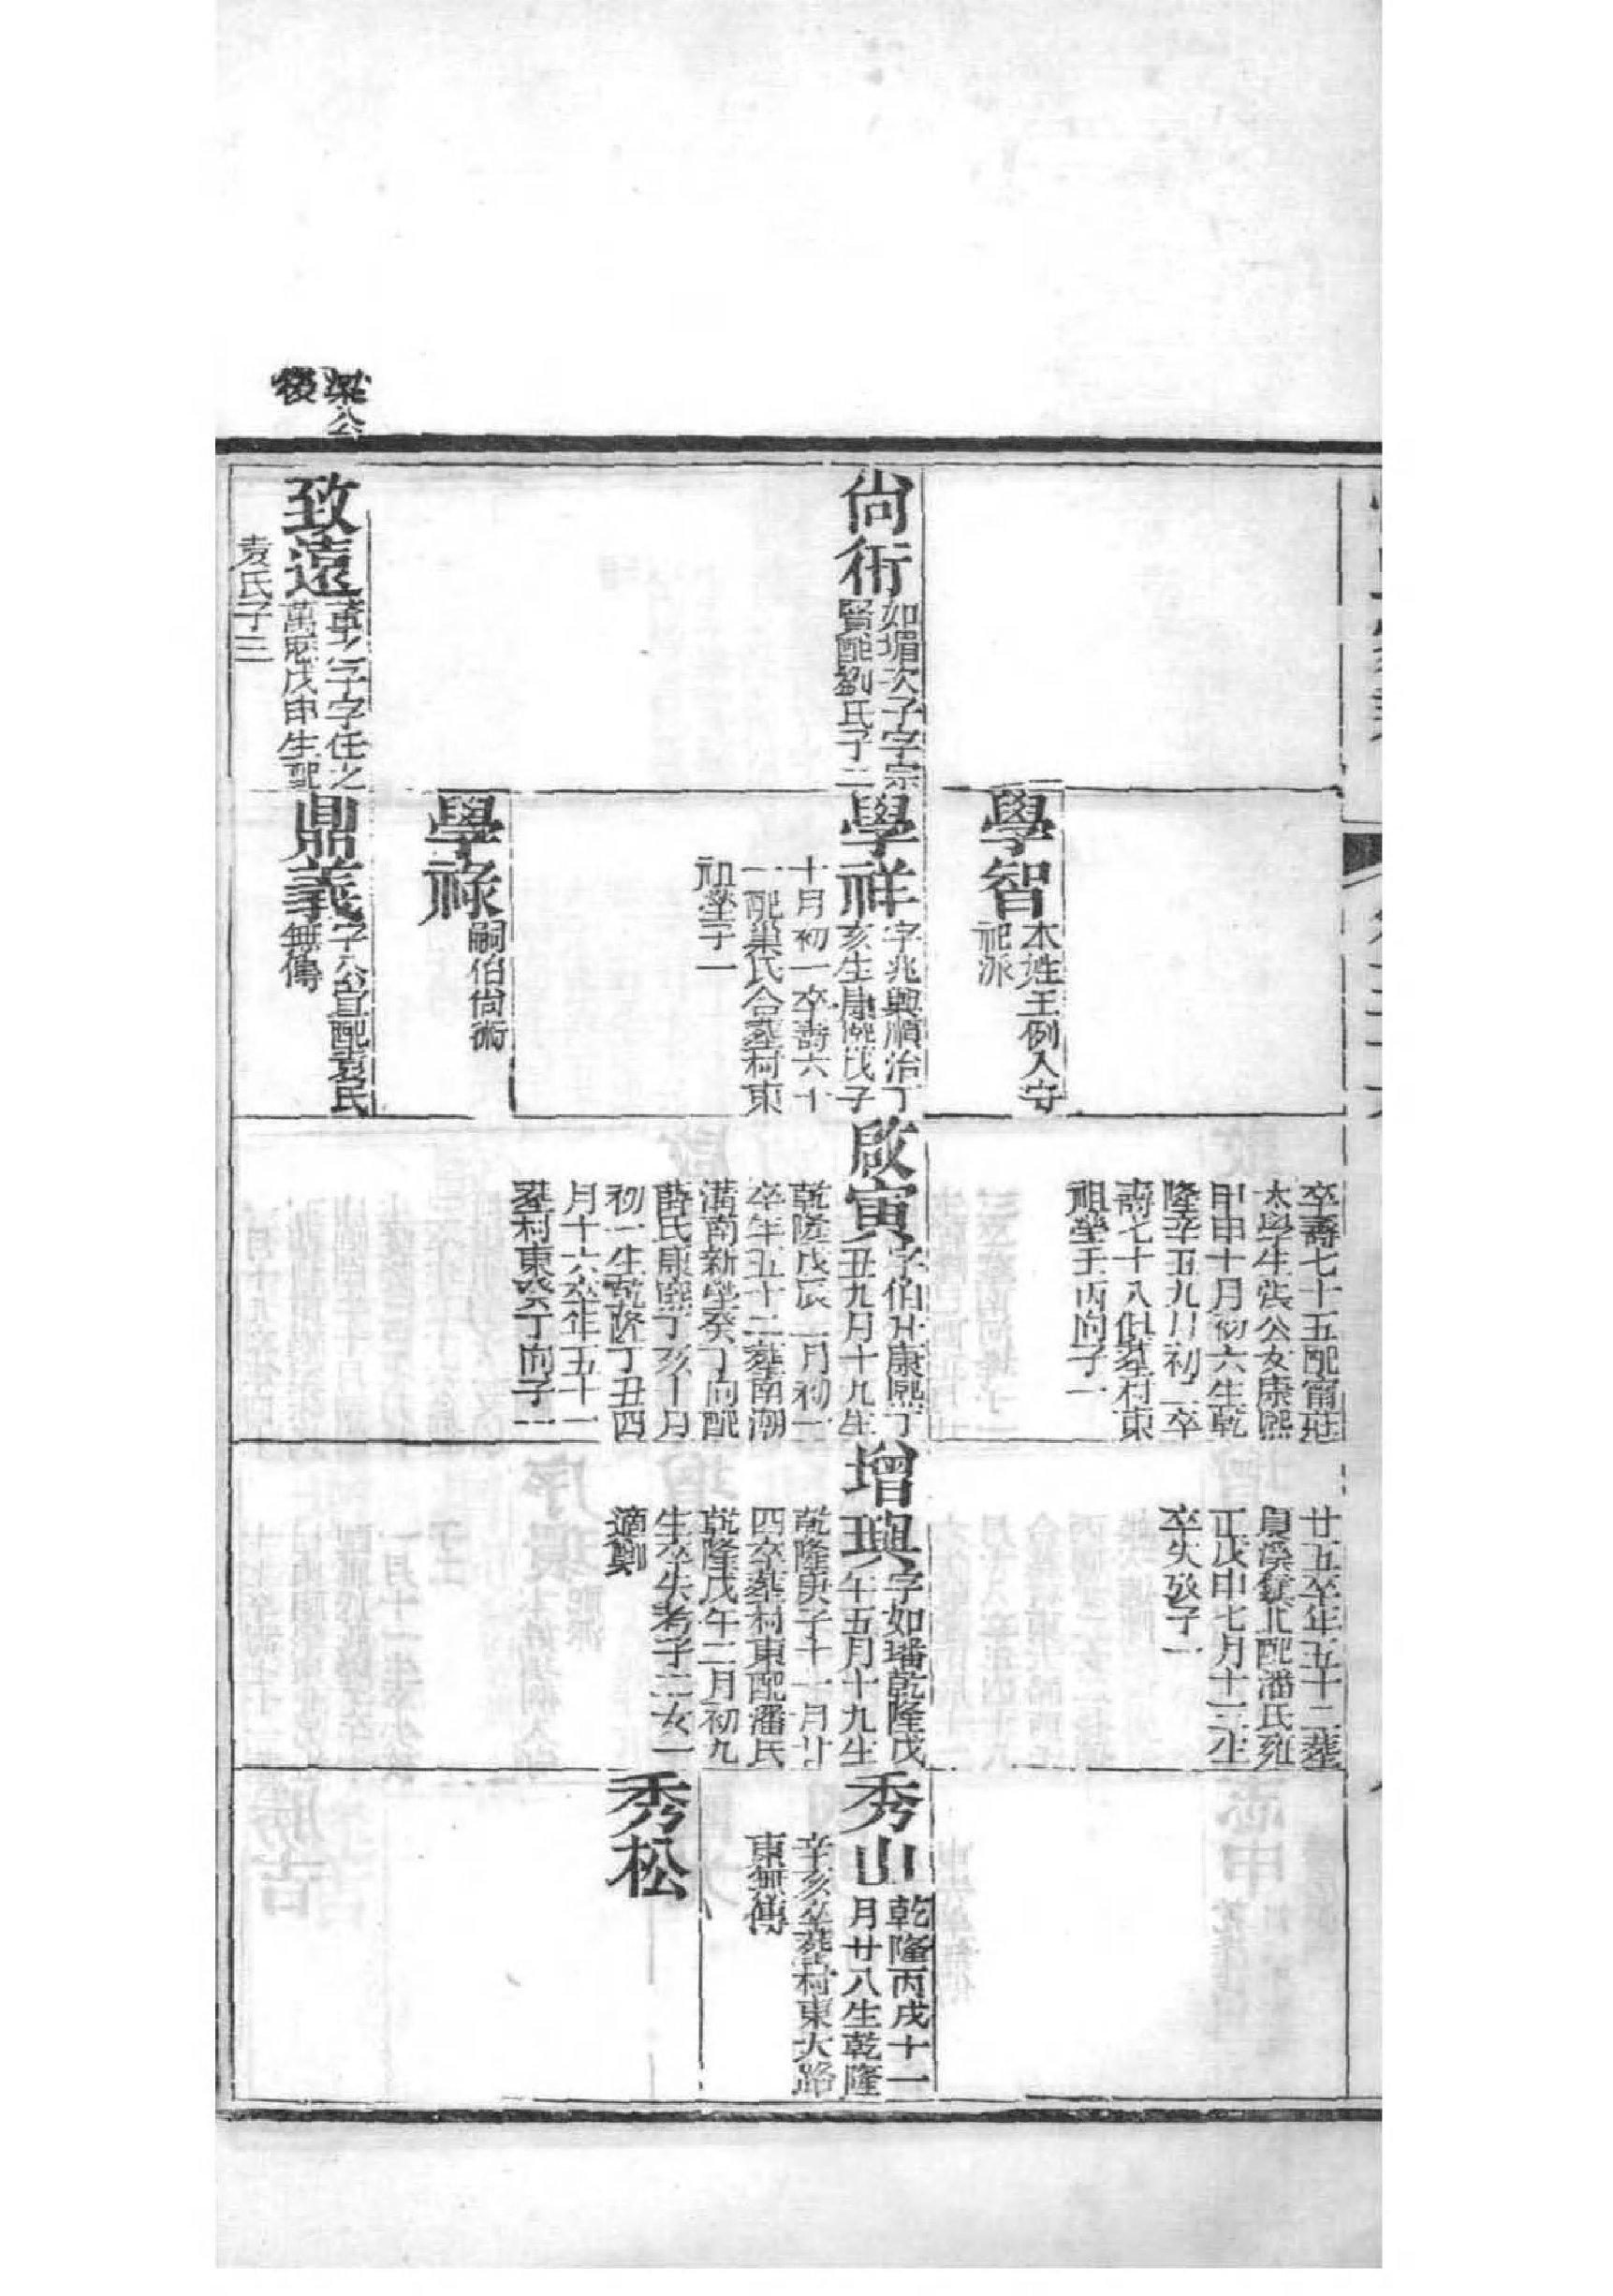 公
後
尙術
如堳次子字宗
賢配劉氏子二
致遠
字任之
萬歷戊申生配
袁氏子三
學智
本姓王例入守
祀派
學祥
字兆興順治丁
亥生康熙戊子
十月初一卒壽六十
一配巢氏合葬村東
祖塋子一
學祿
嗣伯尙術
鼎義
字公宜配袁氏
無傳
卒壽七十五配甯莊
太學生張公女康熙
甲申十月初六生乾
隆辛丑九月初二卒
壽七十八俱葬村東
祖塋壬丙向子一
啟寅
字伯升康熙丁
丑九月十九生
乾隆戊辰二月初一
卒年五十二葬南湖
溝南新塋癸丁向配
薛氏康熙丁亥十月
初一生乾隆丁丑四
月十六卒年五十一
葬村東癸丁向子一
廿五卒年五十二葬
溪鎮北配潘氏雍
正戊申七月十三生
卒失攷子一
增興
字如璠乾隆戊
午五月十九生
乾隆庚子十一月廿
四卒葬村東配潘氏
乾隆戊午二月初九
生卒失考子二女一
適鄭
秀山
乾隆丙戌十一
月廿八生乾隆
辛亥卒葬村東大路
東無傳
秀松